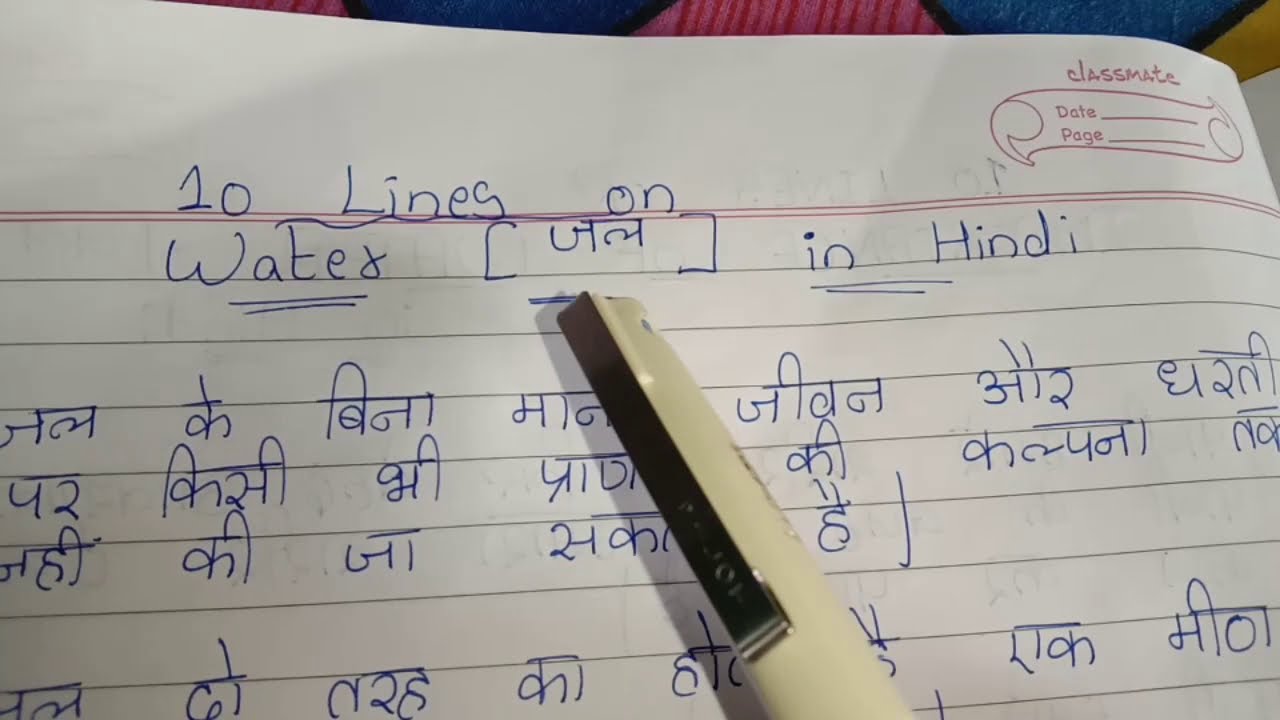 classmate
Date
Page
10 Lines on
Water [जल] in Hindi
जल के बिना जीवन और धरती
पर किसी भी की कल्पना तक
नहीं की जा है |
जल दो तरह का है एक मीठा